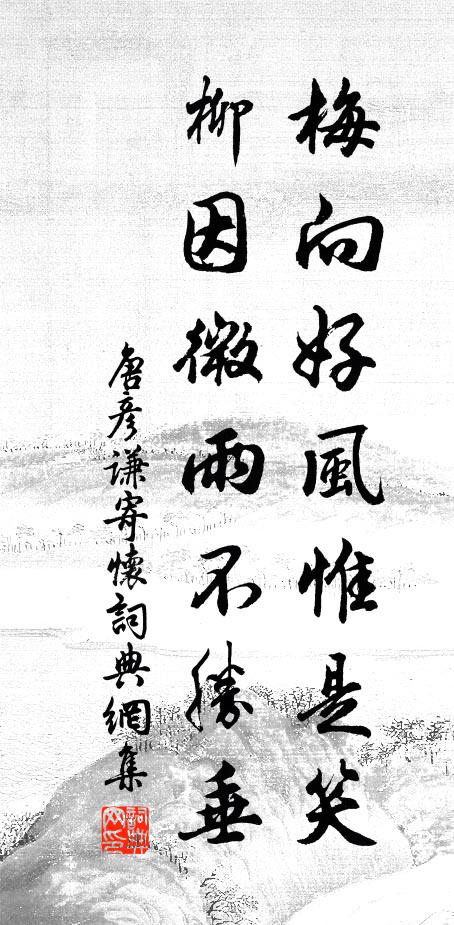 梅向好風惟是笑
柳因微雨不勝垂
唐彥謙寄懷詞典網集
詞典網印